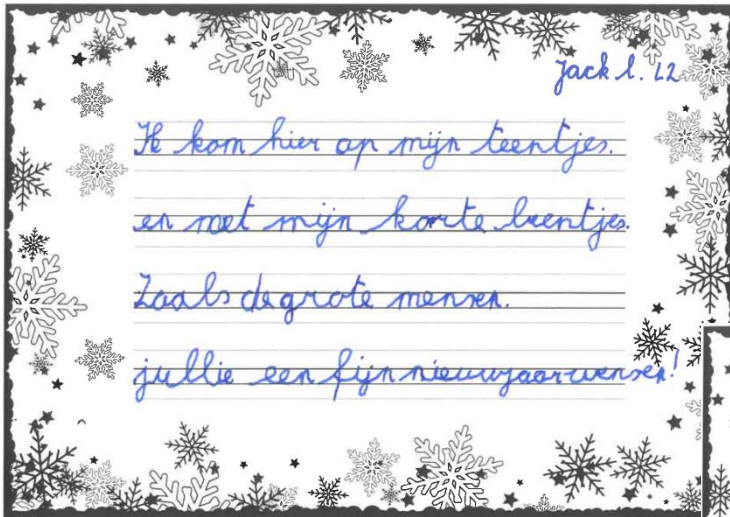 Jack l. L2
Ik kom hier op mijn teentjes.
en met mijn korte beentjes.
Zoals de grote mensen.
jullie een fijn nieuwjaar wensen!